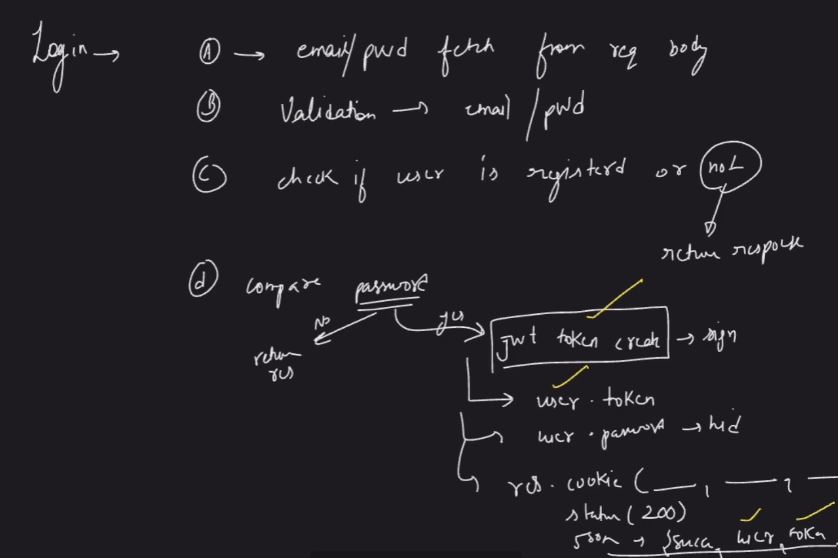 Login → Ⓐ → email/pwd fetch from req body
Ⓑ Validation → email / pwd
Ⓒ check if user is registerd or not
return response
ⓓ compare password
No yes
return res
jwt token creat → sign
user . token
user . password → hid
res . cookie ( __ , __ , __
status (200)
json → { succ, user, token